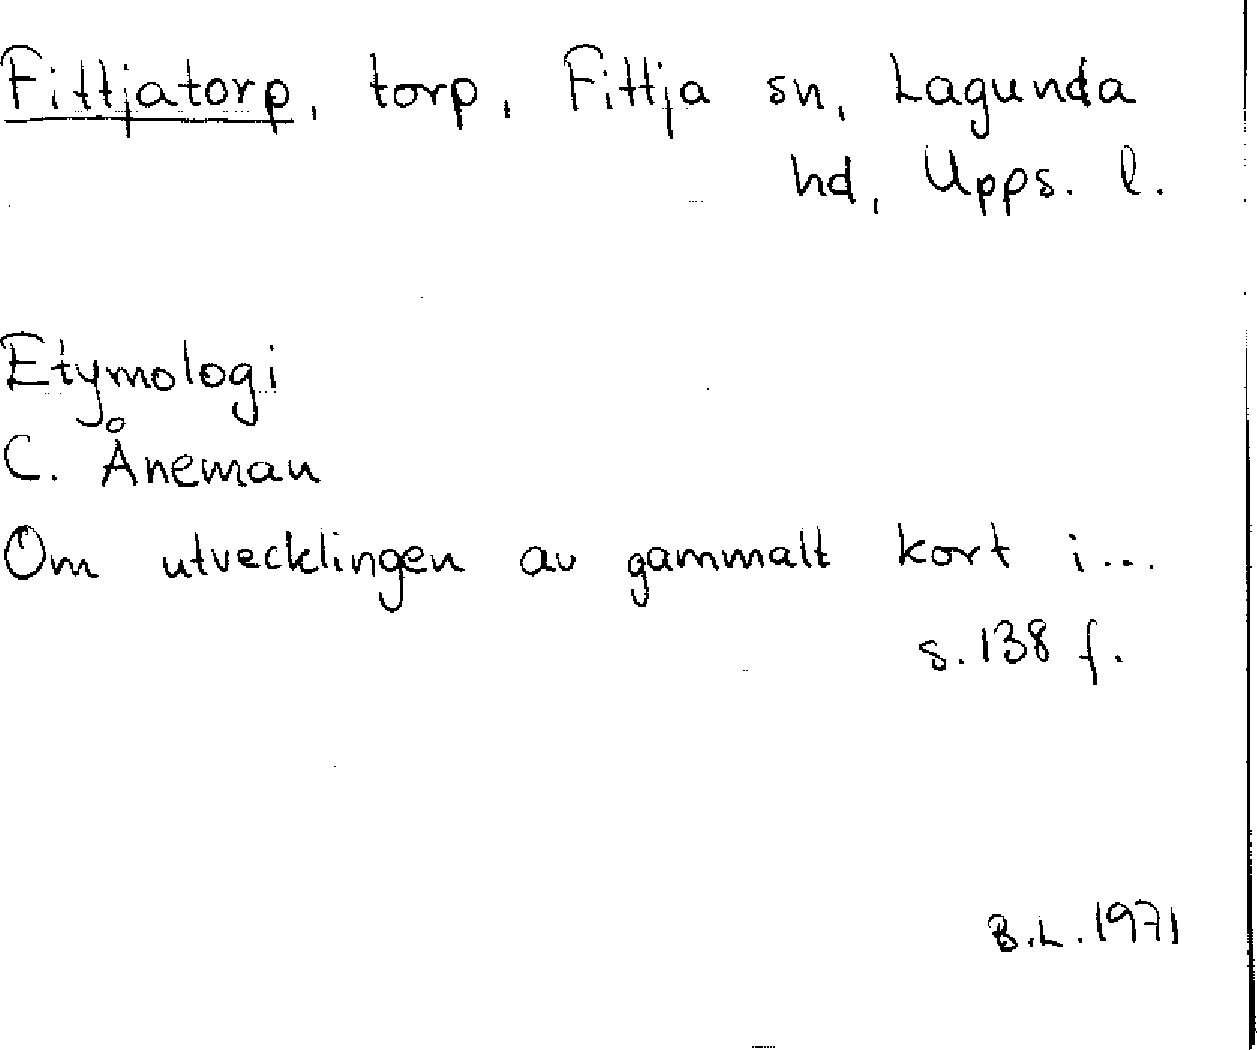 Fittjatorp, torp, Fittja sn, Lagunda
hd, Upps. l.
Etymologi
C. Åneman
Om utvecklingen av gammalt kort i...
s. 138 f.
B.L. 1971